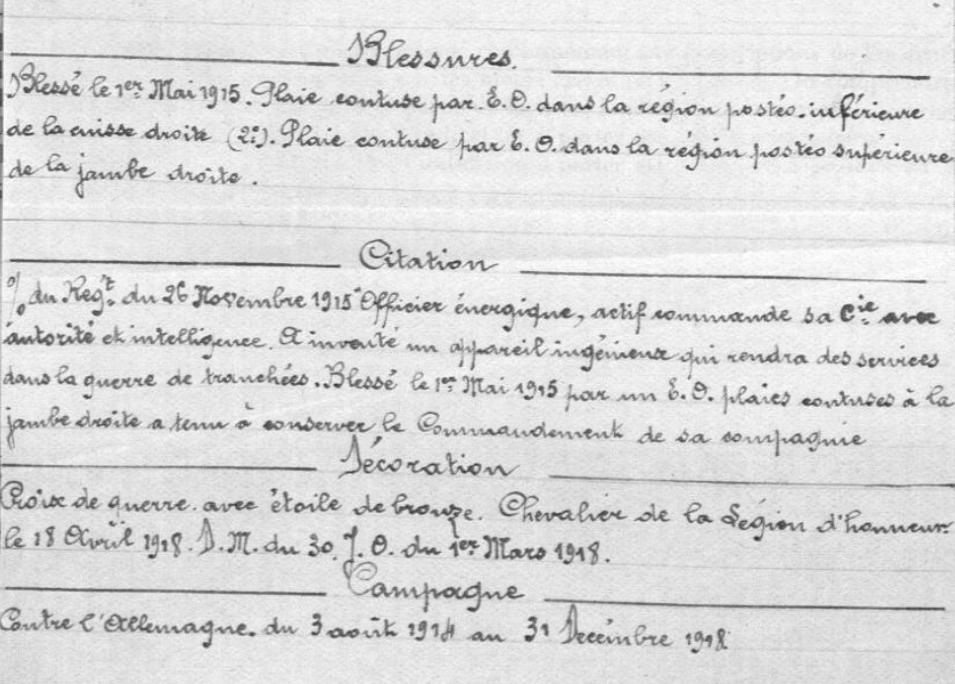 Blessures.
Blessé le 1er Mai 1915. Plaie contuse par E. O. dans la région postéo-inférieure
de la cuisse droite (2º). Plaie contuse par E. O. dans la région postéo supérieure
de la jambe droite.
Citation
% du Regt. du 26 Novembre 1915 "Officier énergique, actif commande sa Cie avec
autorité et intelligence. A inventé un appareil ingénieux qui rendra des services
dans la guerre de tranchées. Blessé le 1er Mai 1915 par un E. O. plaies contuses à la
jambe droite a tenu à conserver le Commandement de sa compagnie
Décoration
Croix de guerre avec étoile de bronze. Chevalier de la Légion d'honneur.
le 18 Avril 1918. D. M. du 30. J. O. du 1er Mars 1918.
Campagne
Contre l'Allemagne. du 3 août 1914 au 31 Décembre 1918